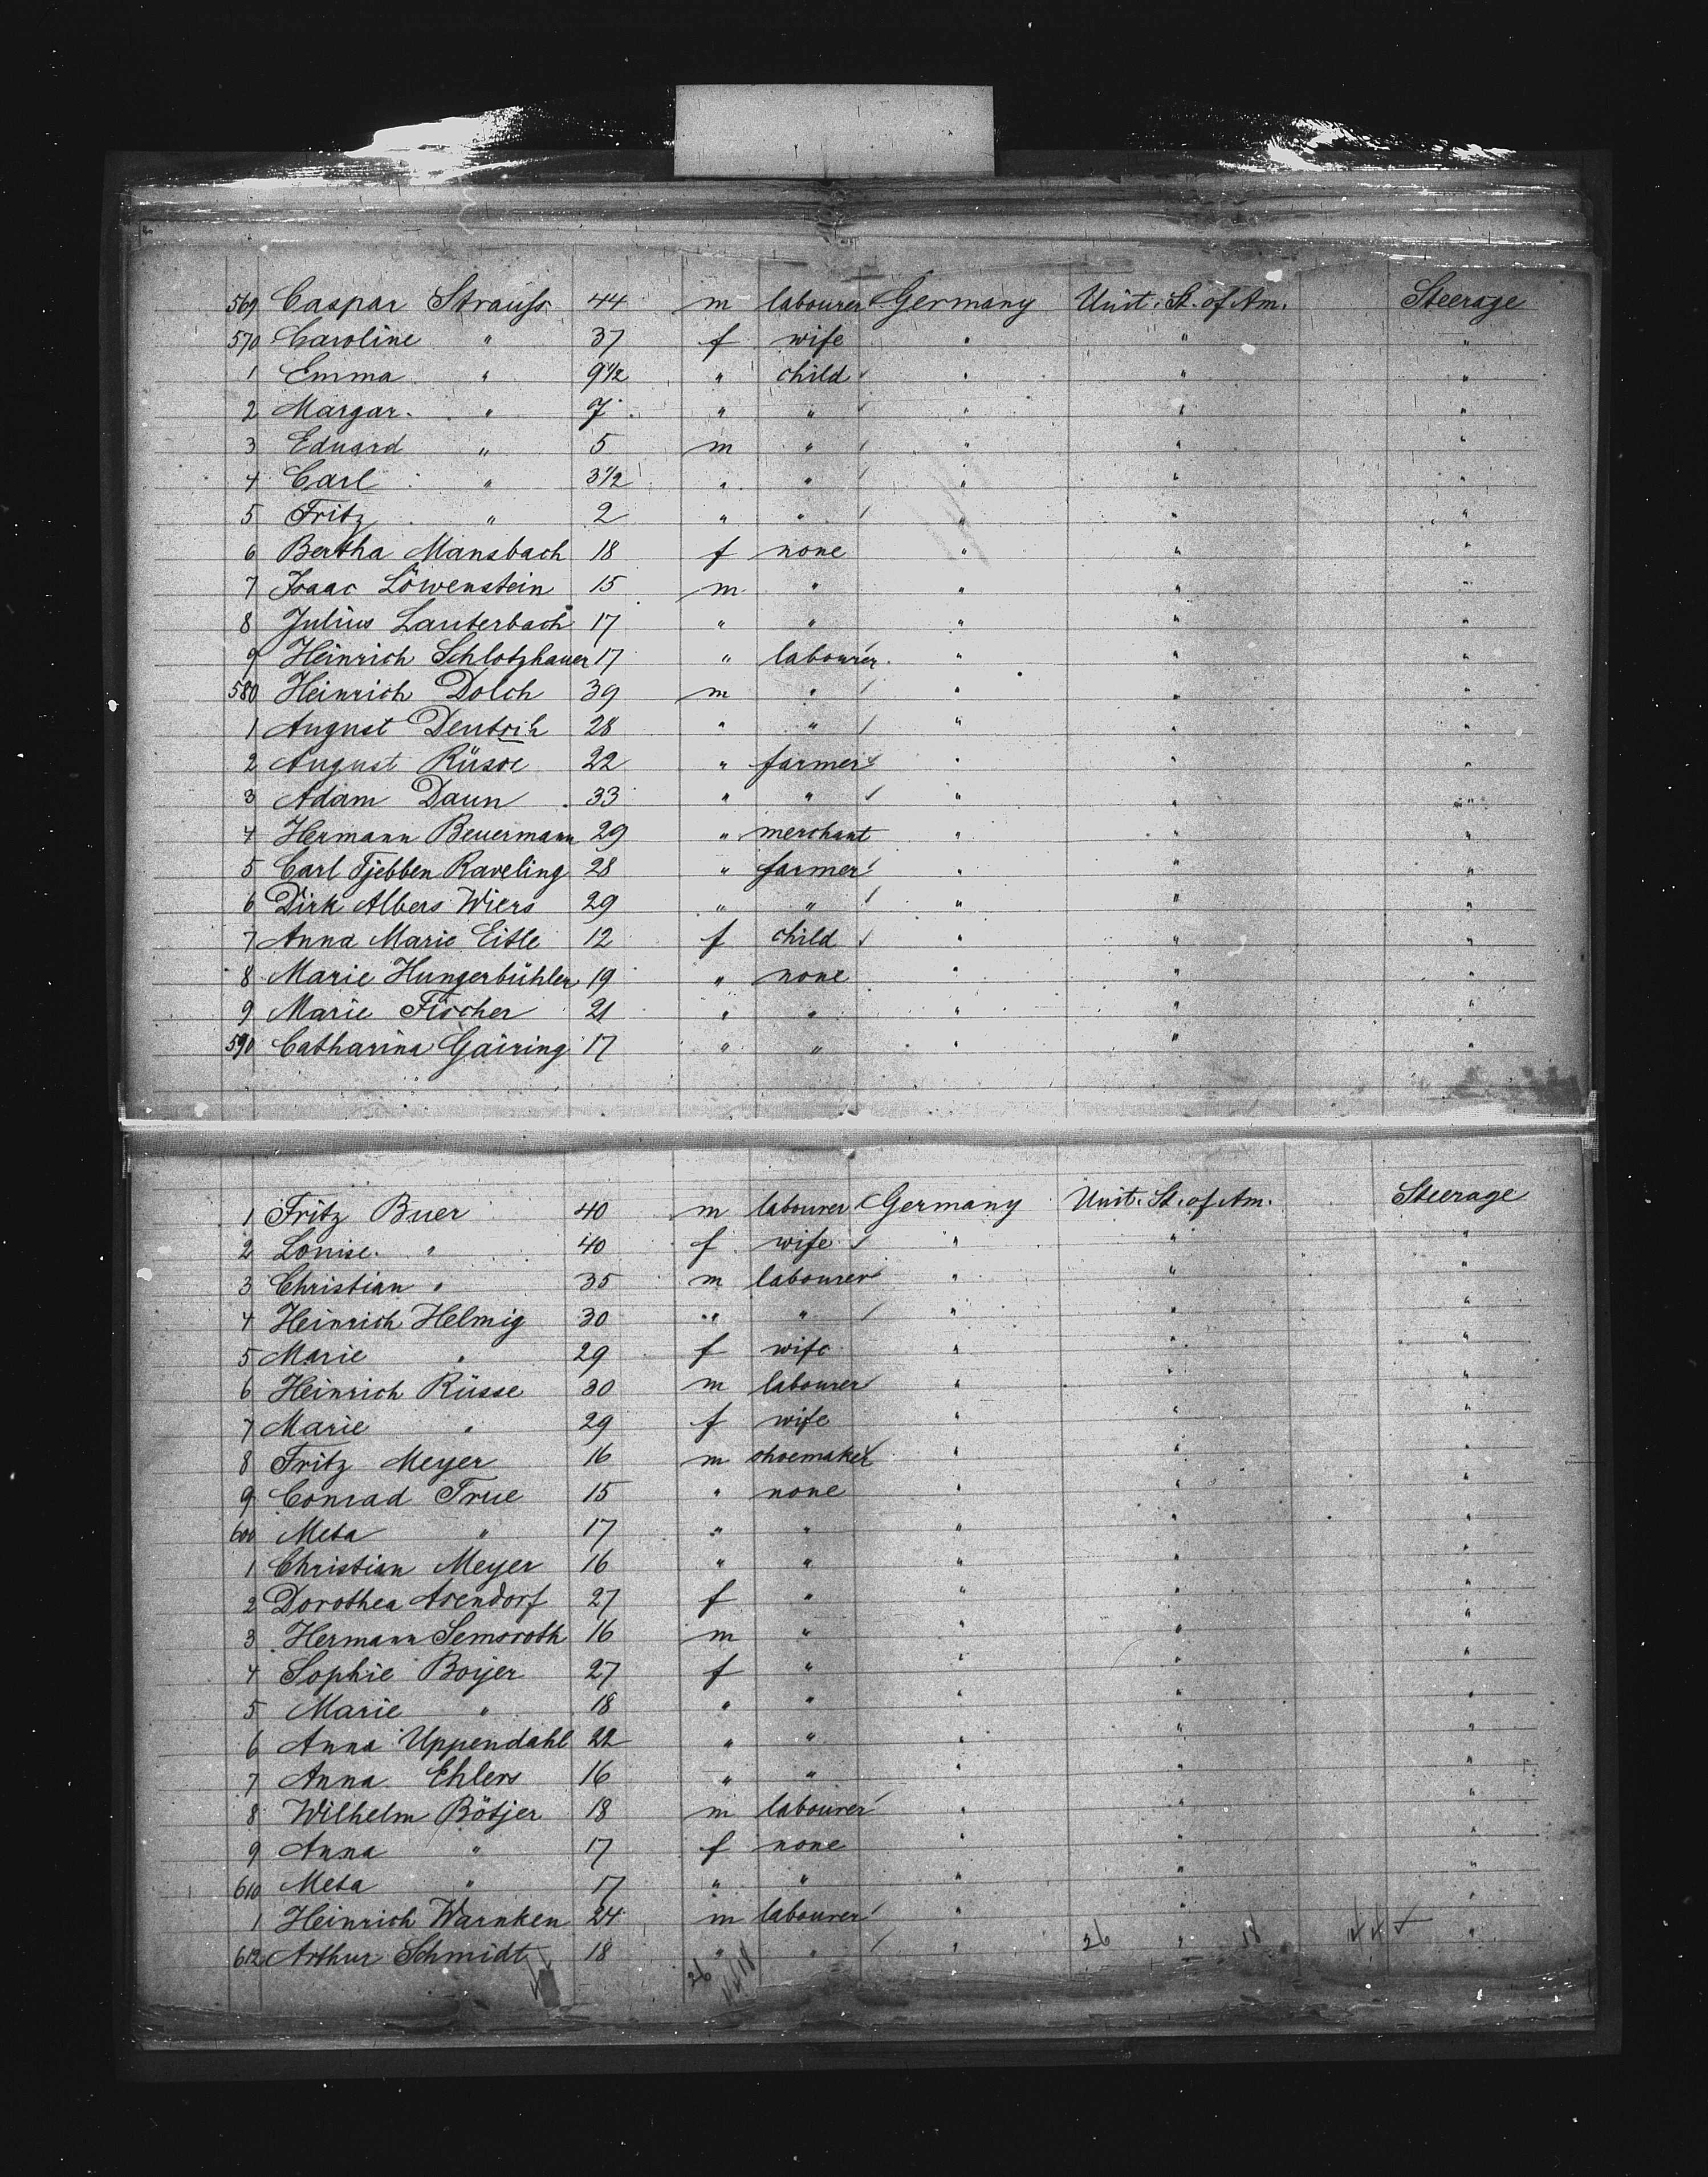 569 Caspar Strauss 44 m labourer Germany Unit. St. of Am. Steerage
570 Caroline " 37 f wife " " "
1 Emma " 9 1/2 " child " " "
2 Margar. " 7 " " " " "
3 Eduard " 5 m " " " "
4 Carl " 3 1/2 " " " " "
5 Fritz " 2 " " " " "
6 Bertha Mansbach 18 f none " " "
7 Isaac Löwenstein 15 m " " " "
8 Julius Lauterbach 17 " " " " "
9 Heinrich Schlotzhauer 17 " labourer " " "
580 Heinrich Dolch 39 m " " " "
1 August 28 " " " " "
2 August 22 " farmer " " "
3 Adam Daun 33 " " " " "
4 Hermann Beuermann 29 " merchant " " "
5 Carl Tjebben Raveling 28 " farmer " " "
6 Dirk Albers Wiers 29 " " " " "
7 Anna Marie Eitle 12 f child " " "
8 Marie Hungerbühler 19 " none " " "
9 Marie Fischer 21 " " " " "
590 Catharina Gairing 17 " " " " "
1 Fritz Buer 40 m labourer Germany Unit. St. of Am. Steerage
2 Louise " 40 f wife " " "
3 Christian " 35 m labourer " " "
4 Heinrich Helmig 30 " " " " "
5 Marie " 29 f wife " " "
6 Heinrich Rüsse 30 m labourer " " "
7 Marie " 29 f wife " " "
8 Fritz Meyer 16 m shoemaker " " "
9 Conrad True 15 " none " " "
600 Meta " 17 " " " " "
1 Christian Meyer 16 " " " " "
2 Dorothea Asendorf 27 f " " " "
3 Hermann Semsroth 16 m " " " "
4 Sophie Boyer 27 f " " " "
5 Marie " 18 " " " " "
6 Anna Uppendahl 22 " " " " "
7 Anna Ehlers 16 " " " " "
8 Wilhelm Bötjer 18 m labourer " " "
9 Anna " 17 f none " " "
610 Meta " 17 " " " " "
1 Heinrich Warnken 24 m labourer " " "
612 Arthur Schmidt 18 " " " 26 " 18 "
26 18